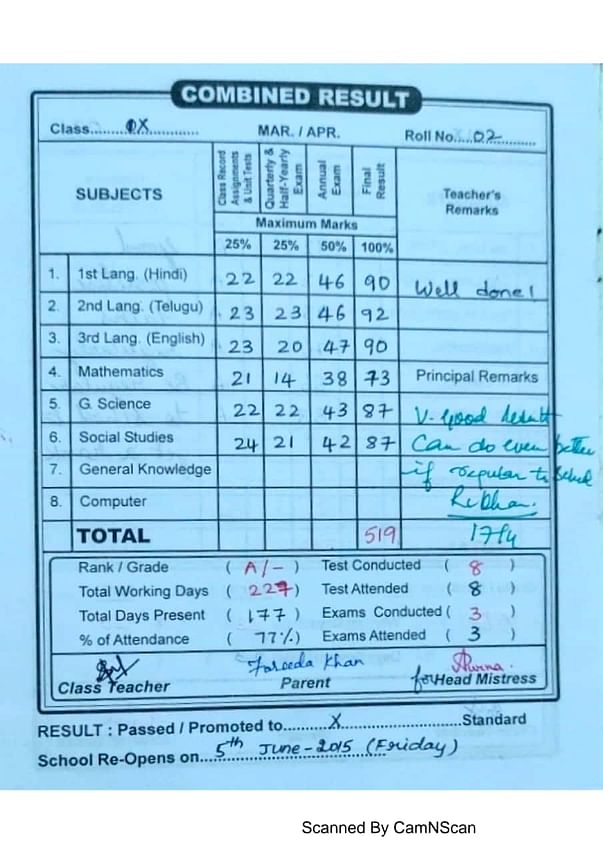 COMBINED RESULT
Class..........IX............ MAR. / APR. Roll No....02........
SUBJECTS Class Record Assignments & Unit Tests Quarterly & Half-Yearly Exam Annual Exam Final Result Teacher's Remarks
Maximum Marks
25% 25% 50% 100%
1. 1st Lang. (Hindi) 22 22 46 90 Well done!
2. 2nd Lang. (Telugu) 23 23 46 92
3. 3rd Lang. (English) 23 20 47 90
4. Mathematics 21 14 38 73 Principal Remarks
5. G. Science 22 22 43 87 V. Good Result
6. Social Studies 24 21 42 87 Can do even better
7. General Knowledge if regular to School
8. Computer
TOTAL 519 17/4
Rank / Grade ( A/- ) Test Conducted ( 8 )
Total Working Days ( 227 ) Test Attended ( 8 )
Total Days Present ( 177 ) Exams Conducted ( 3 )
% of Attendance ( 77% ) Exams Attended ( 3 )
Fareeda Khan
Class Teacher Parent for Head Mistress
RESULT : Passed / Promoted to...........X..............................Standard
School Re-Opens on....5th June-2015 (Friday)
Scanned By CamNScan